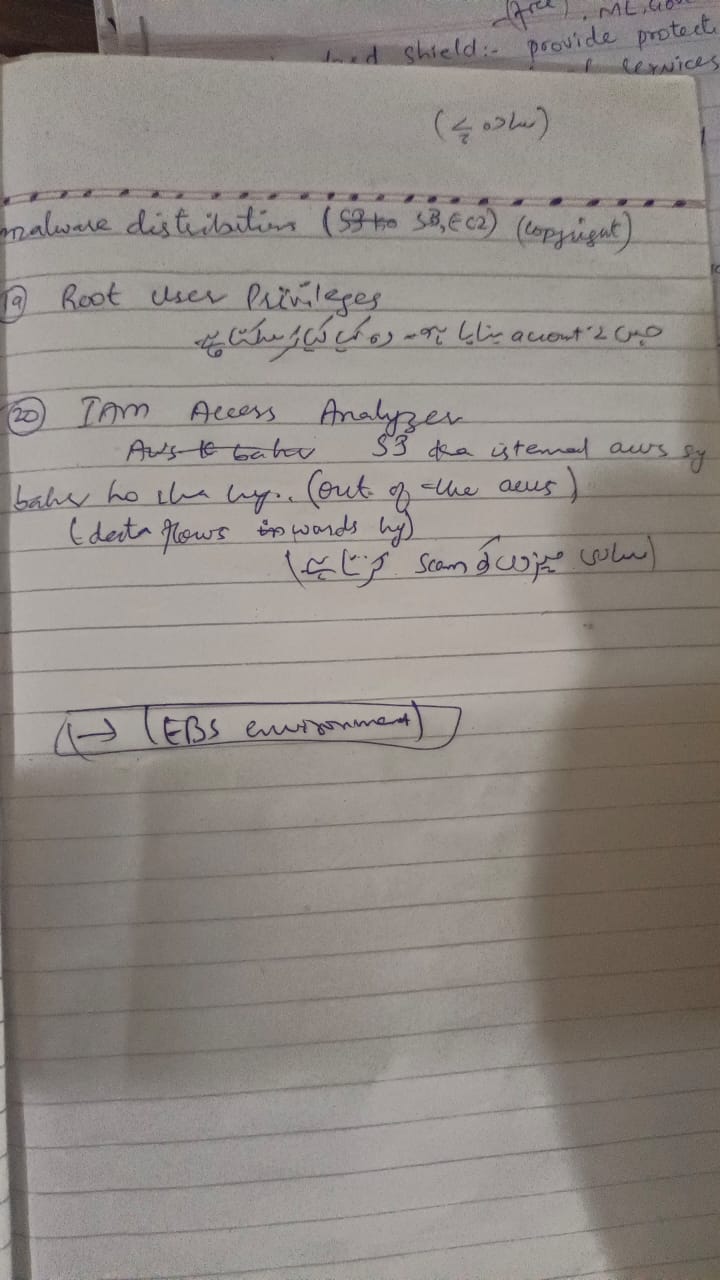 (free), ML,
shield:- provide protect
services
malware distribution (S3 to S3, EC2) (copyright)
19 Root User Privileges
جس نے account بنایا ہے۔ وہ کیا کیا کر سکتا ہے
20 IAM Access Analyzer
Aws to baher S3 ka istemal aws sy
baher ho rha hy.. (out of the aws)
(data flows in wards hy)
(ساری چیزوں کو scan کرتا ہے)
→ (EBS environment)